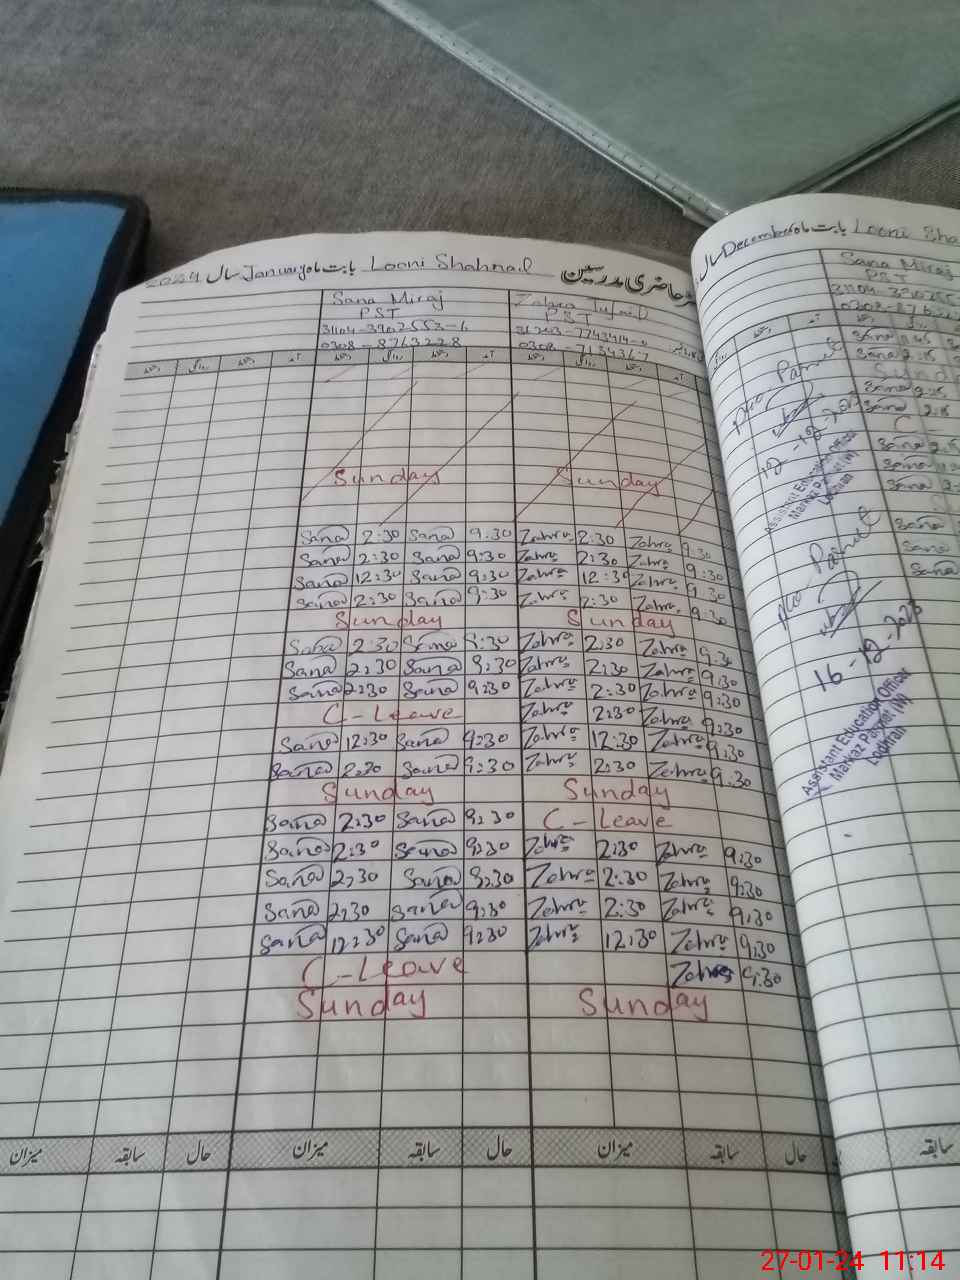 2024 سال January بابت ماہ Looni Shahnail حاضری مدرسین
Sana Miraj
PST
0308-8763228
PST
0308-7134367
Sunday Sunday
Sana 2:30 Sana 9:30 Zahra 2:30 Zahra 9:30
Sana 2:30 Sana 9:30 Zahra 2:30 Zahra 9:30
Sana 12:30 Sana 9:30 Zahra 12:30 Zahra 9:30
Sana 2:30 Sana 9:30 Zahra 2:30 Zahra 9:30
Sunday Sunday
Sana 2:30 Sana 9:30 Zahra 2:30 Zahra 9:30
Sana 2:30 Sana 9:30 Zahra 2:30 Zahra 9:30
Sana 2:30 Sana 9:30 Zahra 2:30 Zahra 9:30
C-Leave Zahra 2:30 Zahra 9:30
Sana 12:30 Sana 9:30 Zahra 12:30 Zahra 9:30
Sana 2:30 Sana 9:30 Zahra 2:30 Zahra 9:30
Sunday Sunday
Sana 2:30 Sana 9:30 C-Leave
Sana 2:30 Sana 9:30 Zahra 2:30 Zahra 9:30
Sana 2:30 Sana 9:30 Zahra 2:30 Zahra 9:30
Sana 2:30 Sana 9:30 Zahra 2:30 Zahra 9:30
Sana 12:30 Sana 9:30 Zahra 12:30 Zahra 9:30
C-Leave Zahra 9:30
Sunday Sunday
میزان سابقہ حال میزان سابقہ حال میزان سابقہ حال
سال December بابت ماہ Looni Sha
Sana Miraj
PST
Assistant Education Officer
Markaz Parmat (W)
Lodhran
16-12-2023
Assistant Education Officer
Markaz Parmat (W)
Lodhran
سابقہ
27-01-24 11:14